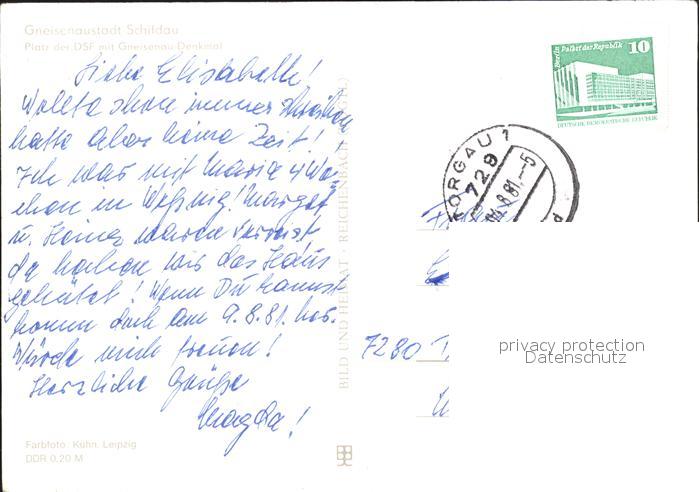 Gneisenaustadt Schildau
Platz der DSF mit Gneisenau-Denkmal
Liebe Elisabeth!
Wollte schon immer schreiben
hatte aber keine Zeit!
Ich war mit Maria 4 Wo-
chen in Weßnig! Margot
u. Heiner waren verreist
da haben wir das Haus
gehütet! Wenn Du kannst
komm doch am 9.8.81.
Würde mich freuen!
Herzliche Grüße
Magda!
Farbfoto: Kühn, Leipzig
DDR 0,20 M
BILD UND HEIMAT · REICHENBACH
Berlin Palast der Republik
10
DEUTSCHE DEMOKRATISCHE REPUBLIK
TORGAU 1
729
8.81.-5
d
7280 T
privacy protection
Datenschutz